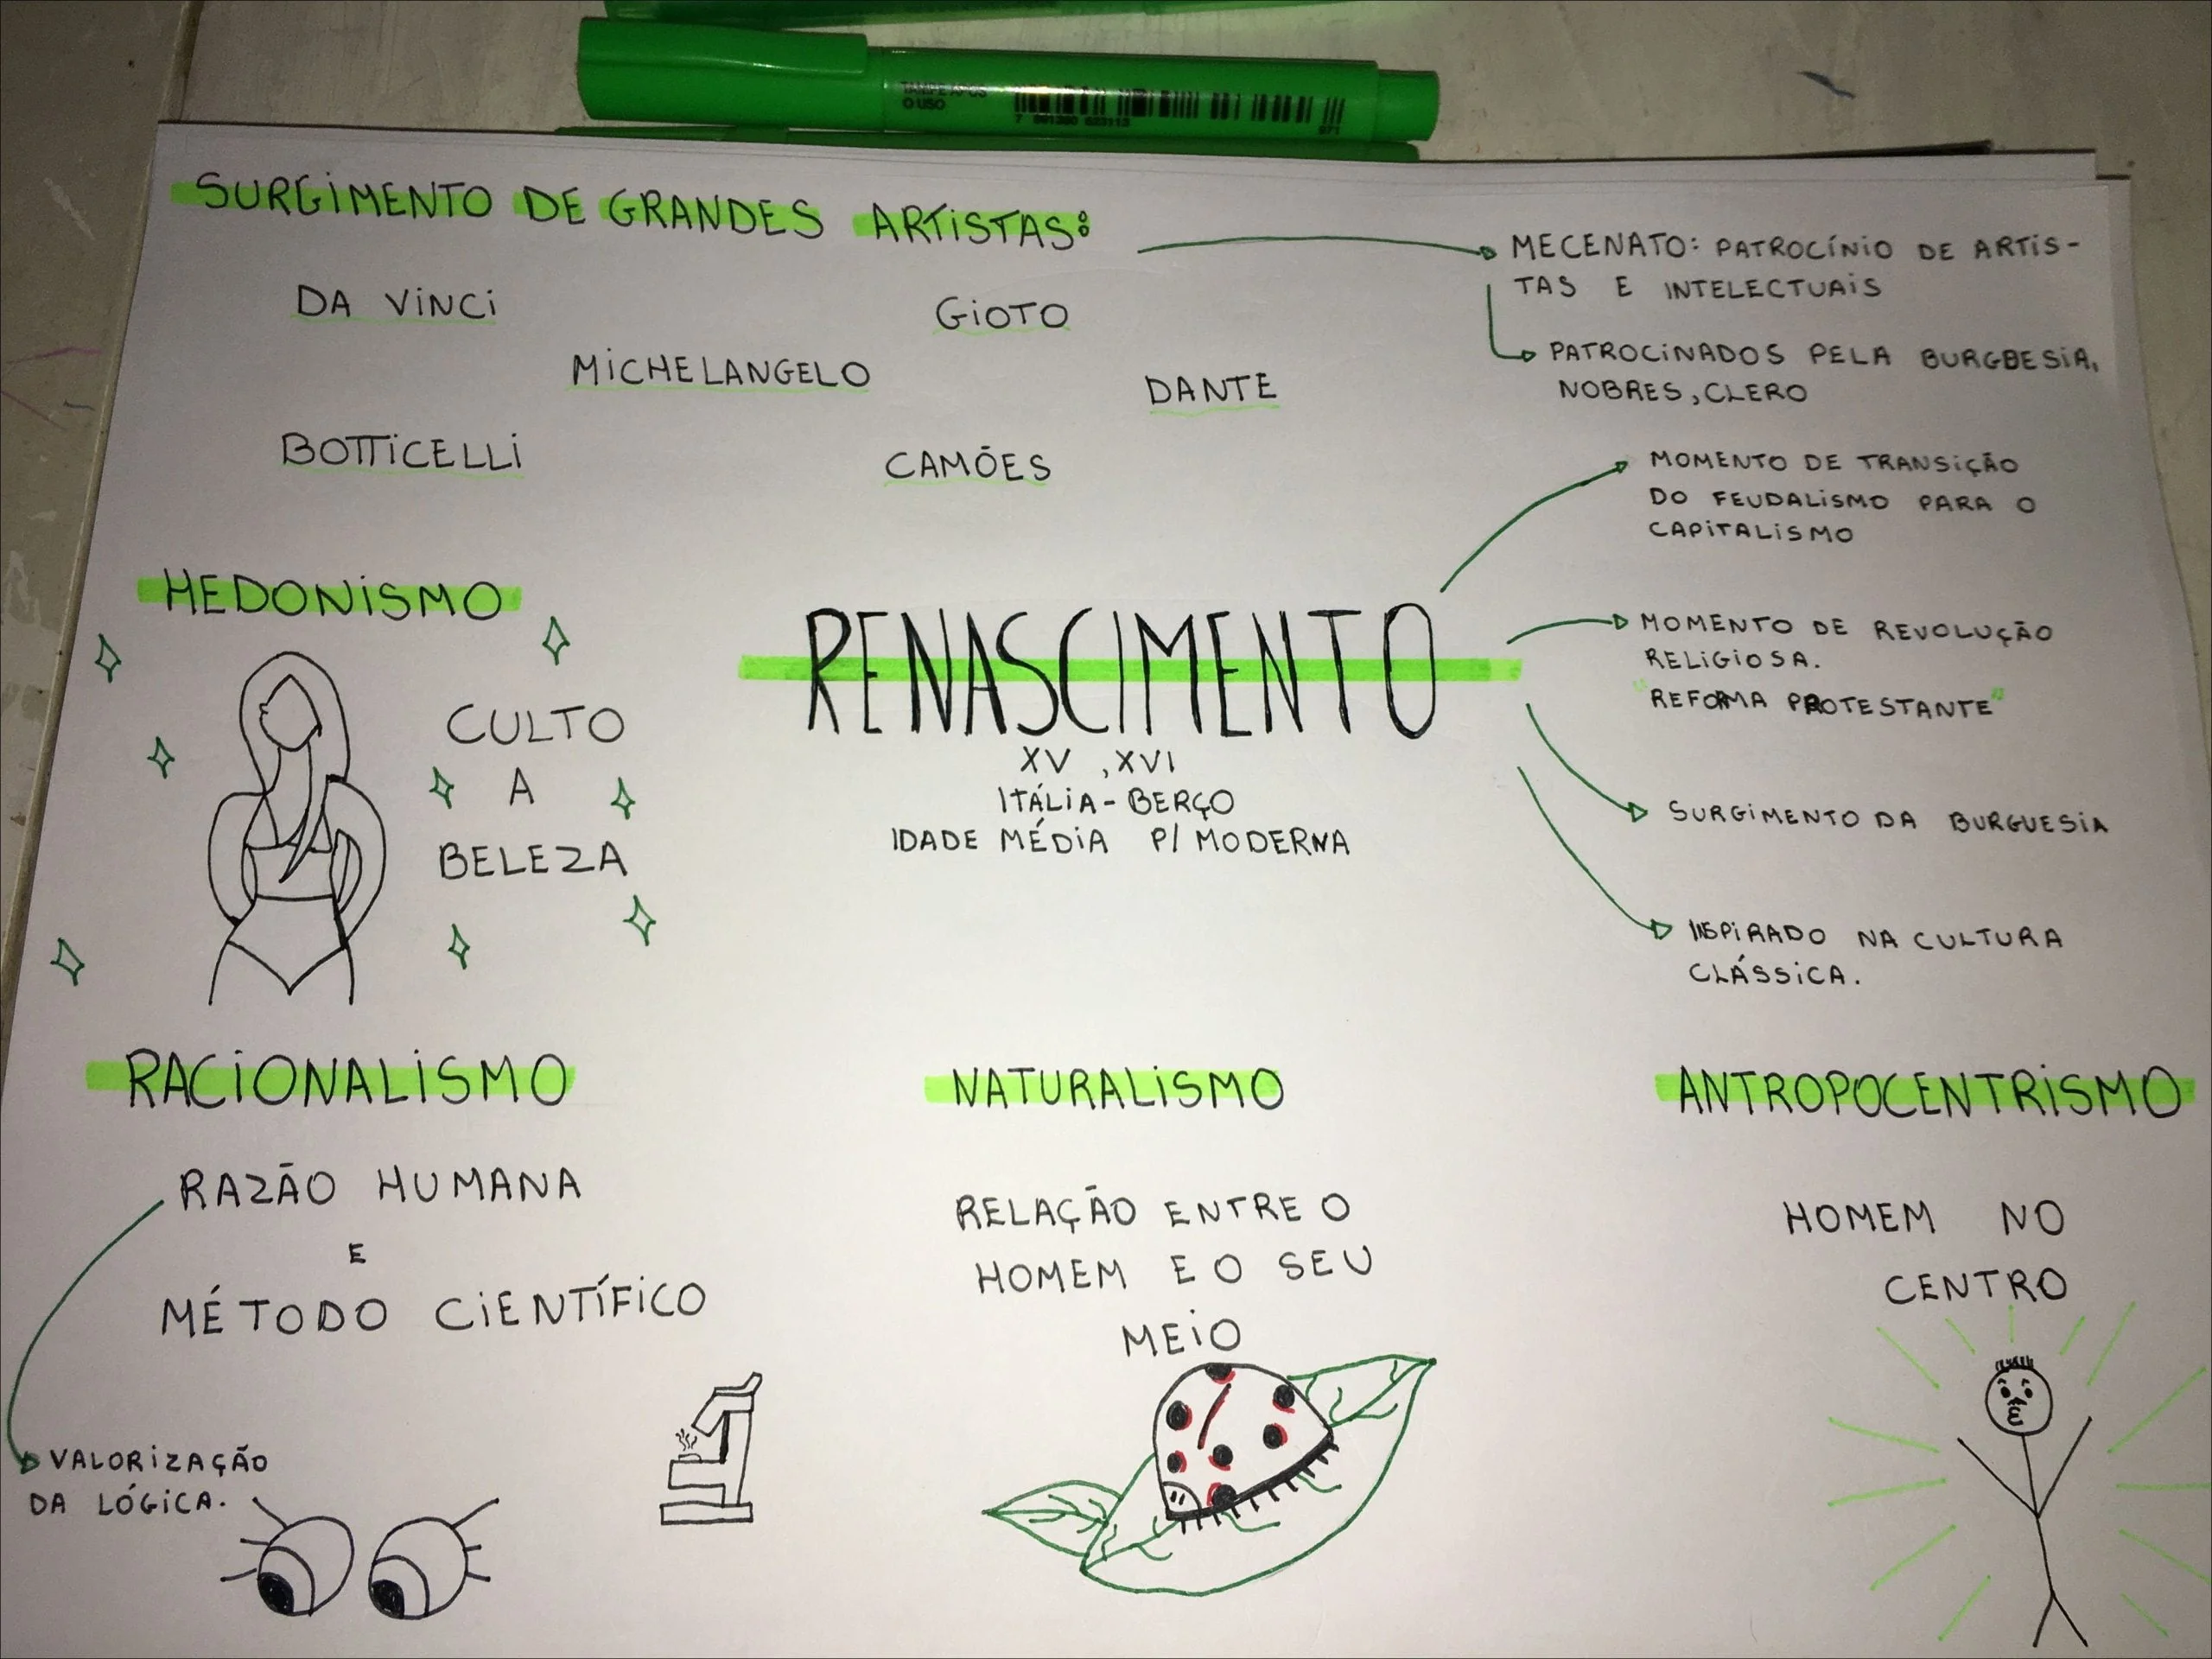 TAMPE APÓS
O USO
SURGIMENTO DE GRANDES ARTISTAS:
DA VINCI
GIOTO
MICHELANGELO
DANTE
BOTTICELLI
CAMÕES
MECENATO: PATROCÍNIO DE ARTIS-
TAS E INTELECTUAIS
PATROCINADOS PELA BURGUESIA,
NOBRES, CLERO
MOMENTO DE TRANSIÇÃO
DO FEUDALISMO PARA O
CAPITALISMO
HEDONISMO
CULTO
A
BELEZA
RENASCIMENTO
XV , XVI
ITÁLIA - BERÇO
IDADE MÉDIA P/ MODERNA
MOMENTO DE REVOLUÇÃO
RELIGIOSA.
"REFORMA PROTESTANTE"
SURGIMENTO DA BURGUESIA
INSPIRADO NA CULTURA
CLÁSSICA.
RACIONALISMO
RAZÃO HUMANA
E
MÉTODO CIENTÍFICO
VALORIZAÇÃO
DA LÓGICA.
NATURALISMO
RELAÇÃO ENTRE O
HOMEM E O SEU
MEIO
ANTROPOCENTRISMO
HOMEM NO
CENTRO